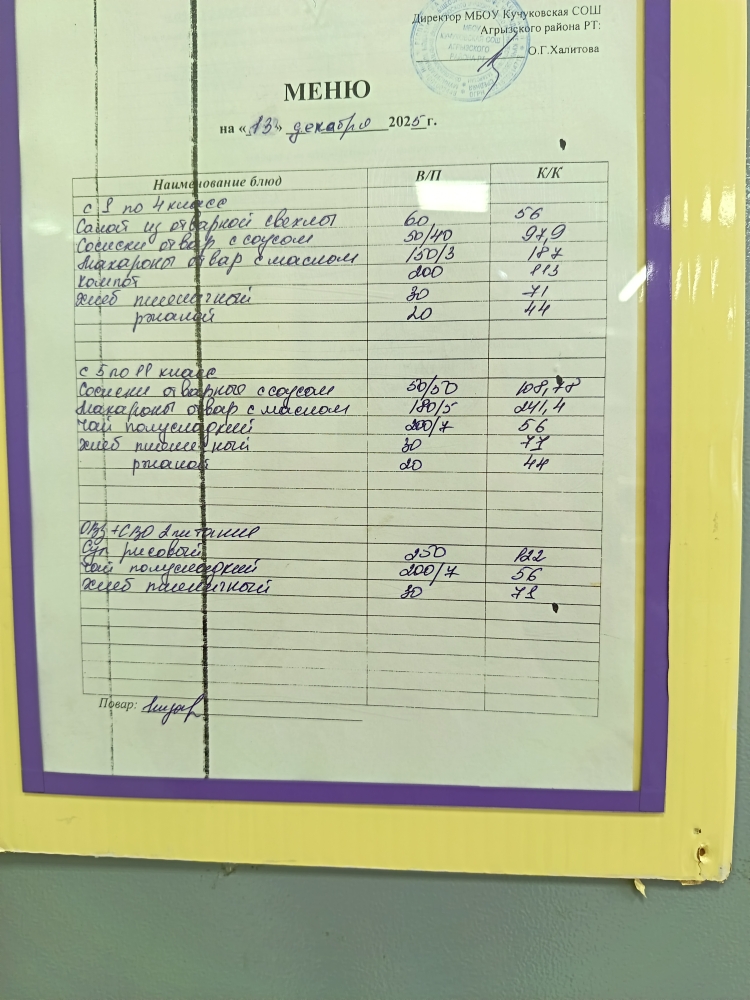 Директор МБОУ Кучуковская СОШ
Агрызского района РТ:
О.Г.Халитова
МЕНЮ
на «13» декабря 2025 г.
Наименование блюд В/П К/К
с 1 по 4 класс
Салат из отварной свеклы 60 56
Сосиски отвар с соусом 50/40 97,9
Макароны отвар с маслом 150/3 187
Компот 200 113
Хлеб пшеничный 30 71
ржаной 20 44
с 5 по 11 класс
Сосиски отварные с соусом 50/50 108,78
Макароны отвар с маслом 180/5 241,4
Чай полусладкий 200/7 56
Хлеб пшеничный 30 71
ржаной 20 44
ОВЗ + СВО 2 питание
Суп рисовый 250 122
Чай полусладкий 200/7 56
Хлеб пшеничный 30 71
Повар: